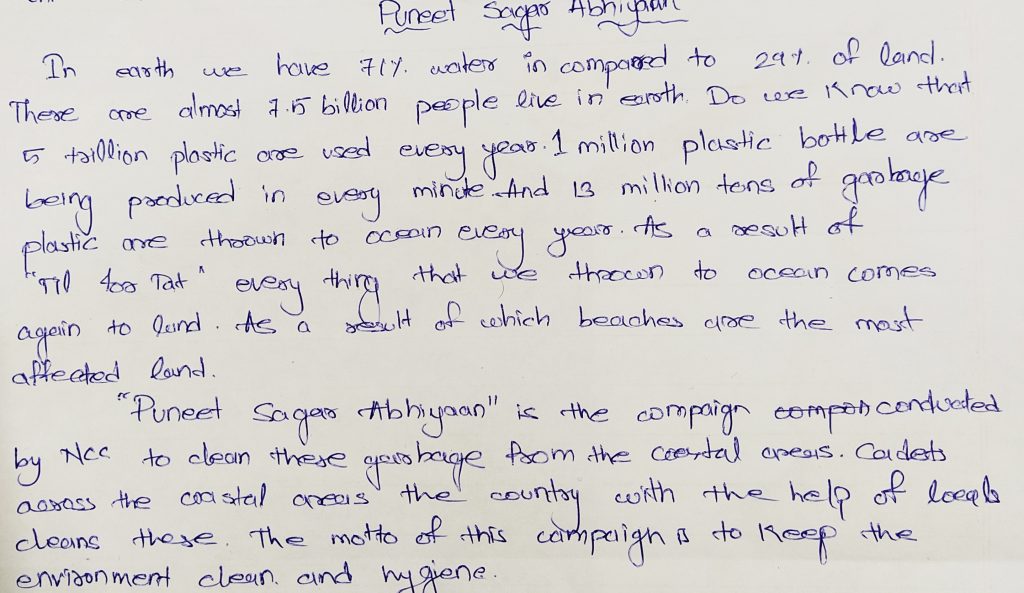 Puneet Sagar Abhiyaan
In earth we have 71% water in compared to 29% of land.
There are almost 7.5 billion people live in earth. Do we know that
5 trillion plastic are used every year. 1 million plastic bottle are
being produced in every minute. And 13 million tons of garbage
plastic are thrown to ocean every year. As a result of
"Tit for Tat" every thing that we thrown to ocean comes
again to land. As a result of which beaches are the most
affected land.
"Puneet Sagar Abhiyaan" is the campaign conducted
by NCC to clean these garbage from the coastal areas. Cadets
across the coastal areas the country with the help of locals
cleans these. The motto of this campaign is to keep the
environment clean and hygiene.